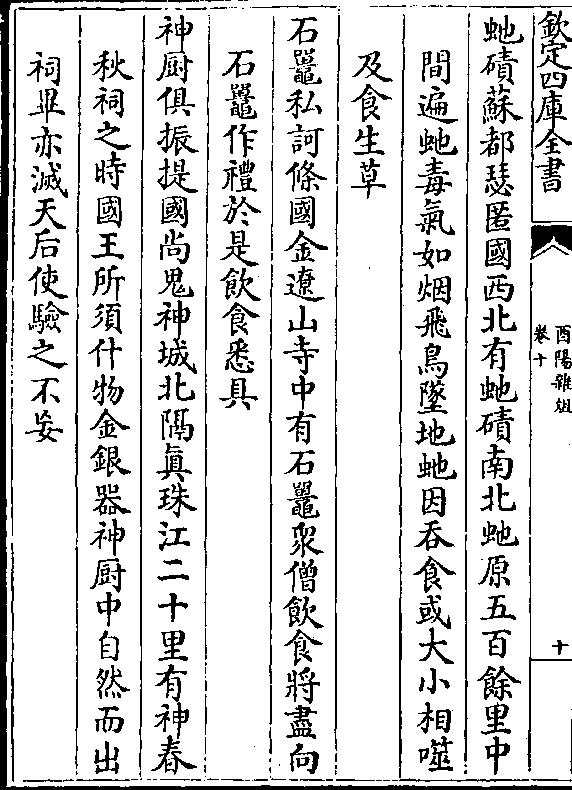 欽定四庫全書
酉陽雜俎
卷十
十
虵磧蘇都瑟匿國西北有虵磧南北虵原五百餘里中
間遍虵毒氣如烟飛鳥墜地虵因吞食或大小相噬
及食生草
石鼉私訶條國金遼山寺中有石鼉衆僧飲食將盡向
石鼉作禮於是飲食悉具
神厨俱振提國尚鬼神城北隅真珠江二十里有神春
秋祠之時國王所須什物金銀器神厨中自然而出
祠畢亦滅天后使驗之不妄